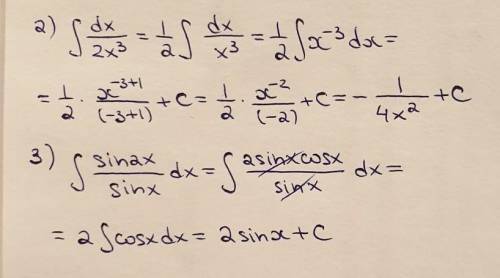 2) ∫ dx/2x³ = 1/2 ∫ dx/x³ = 1/2 ∫ x⁻³ dx =
= 1/2 · x⁻³⁺¹/(-3+1) + C = 1/2 · x⁻²/(-2) + C = - 1/4x² + C
3) ∫ sin2x/sinx dx = ∫ 2sinxcosx/sinx dx =
= 2 ∫ cosxdx = 2sinx + C